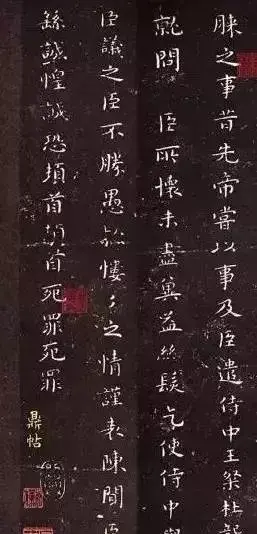 之事昔先帝嘗以事及臣遣侍中王粲杜襲
就問 臣所懷未盡冀益絲髮乞使侍中與
臣議之臣不勝愚款慺慺之情謹表陳聞臣
繇誠惶誠恐頓首頓首死罪死罪
鼎帖